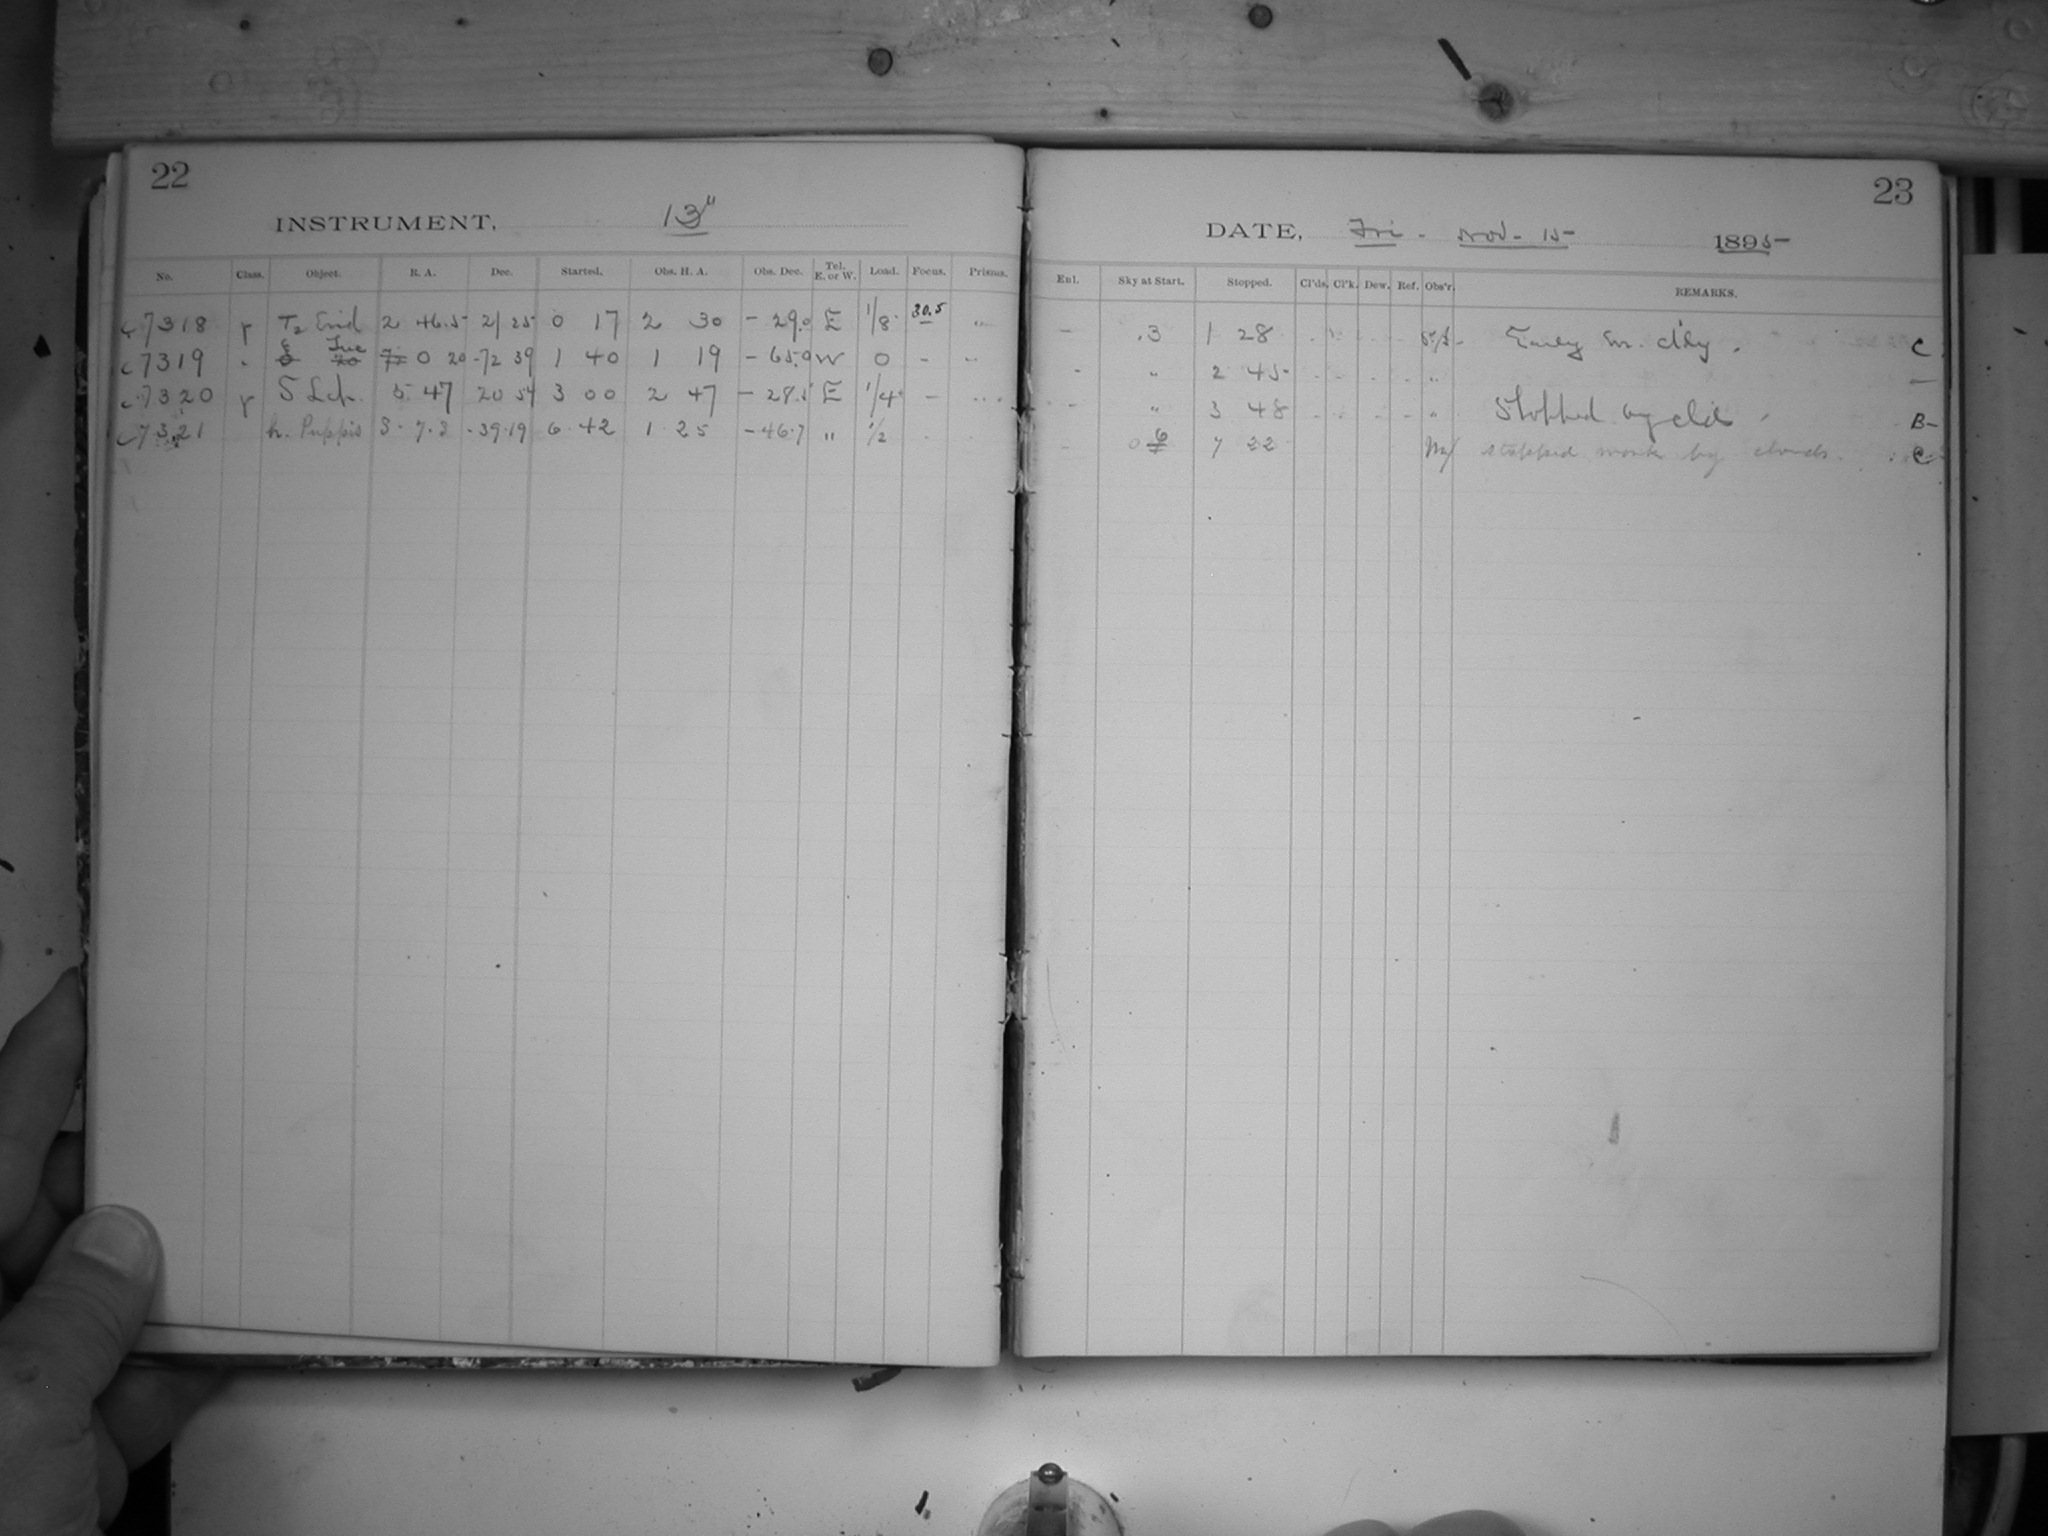 22
INSTRUMENT, 13"
No. Class. Object. R. A. Dec. Started. Obs. H. A. Obs. Dec. Tel. E. or W. Load. Focus. Prisms.
c7318 r T2 Erid 2 46.5 21 25 0 17 2 30 - 29.0 E 1/8 30.5 "
c7319 " ξ Tuc 0 20 -72 39 1 40 1 19 - 65.0 W 0 - "
c7320 r S Lep. 5 47 20 54 3 00 2 47 - 28.5 E 1/4 - "
c7321 h. Puppis 3. 7. 3 -39.19 6 42 1. 25 -46.7 " 1/2
23
DATE, Fri - Nov - 15 1895
Enl. Sky at Start. Stopped. Cl'ds. Cl'k. Dew. Ref. Obs'r. REMARKS.
- .3 1 28 C
- " 2 45 - - - - " —
- " 3 48 - - - - " Stopped by clds B-
- 0 6 7 22 stopped work by clouds. C